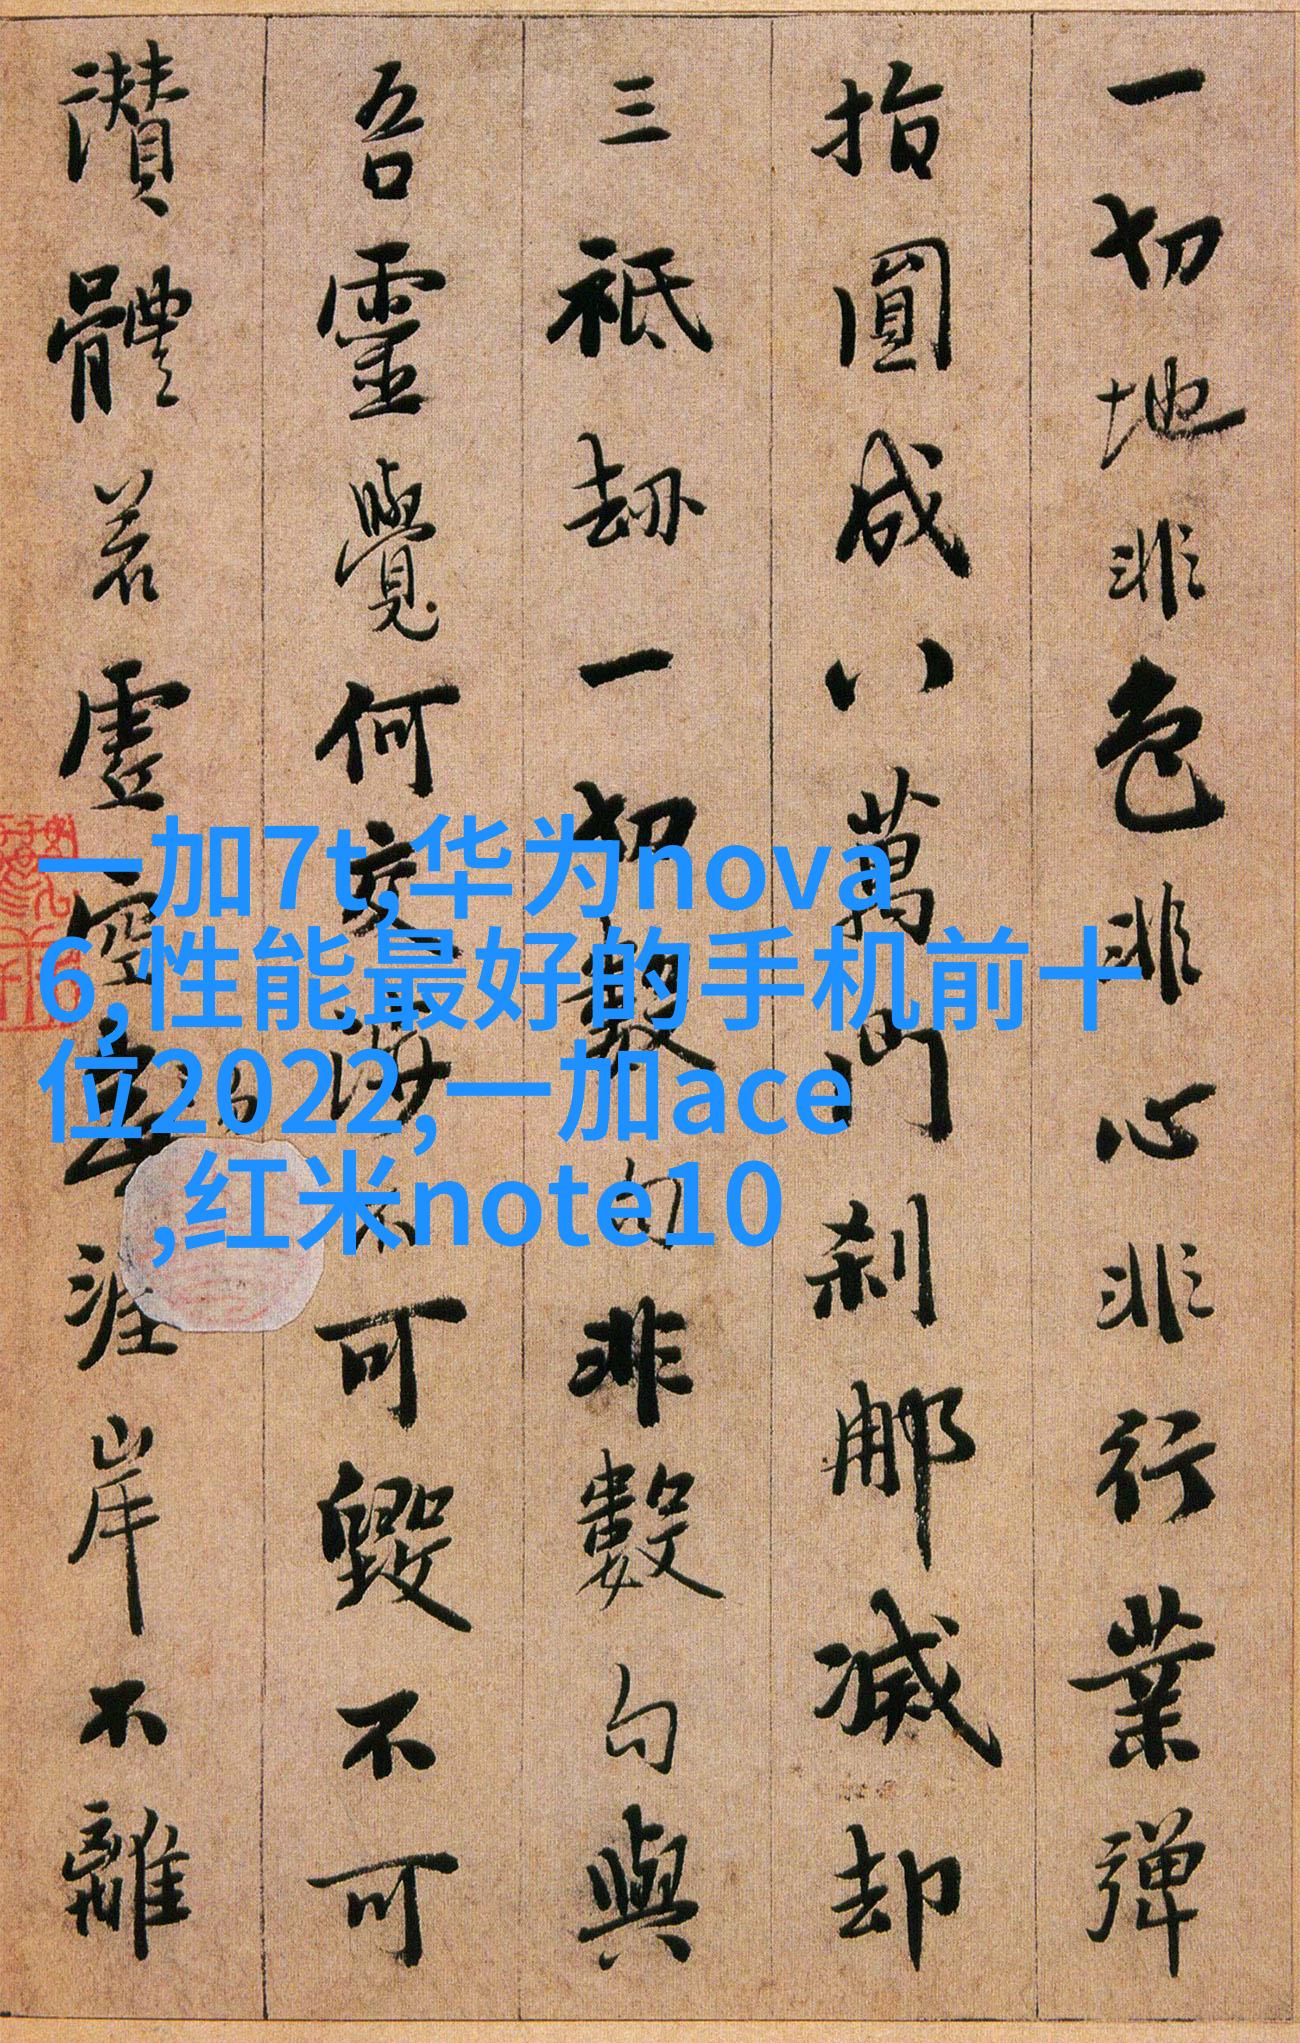 一切地非色非心非行業弹
指圓成八萬門刹那滅却
三祇劫一切數句非數句與
吾靈覺何交涉不可毀不可
讃體若虚空無涯岸不離
一加7t,华为nova
6,性能最好的手机前十
位2022,一加ace
,红米note10